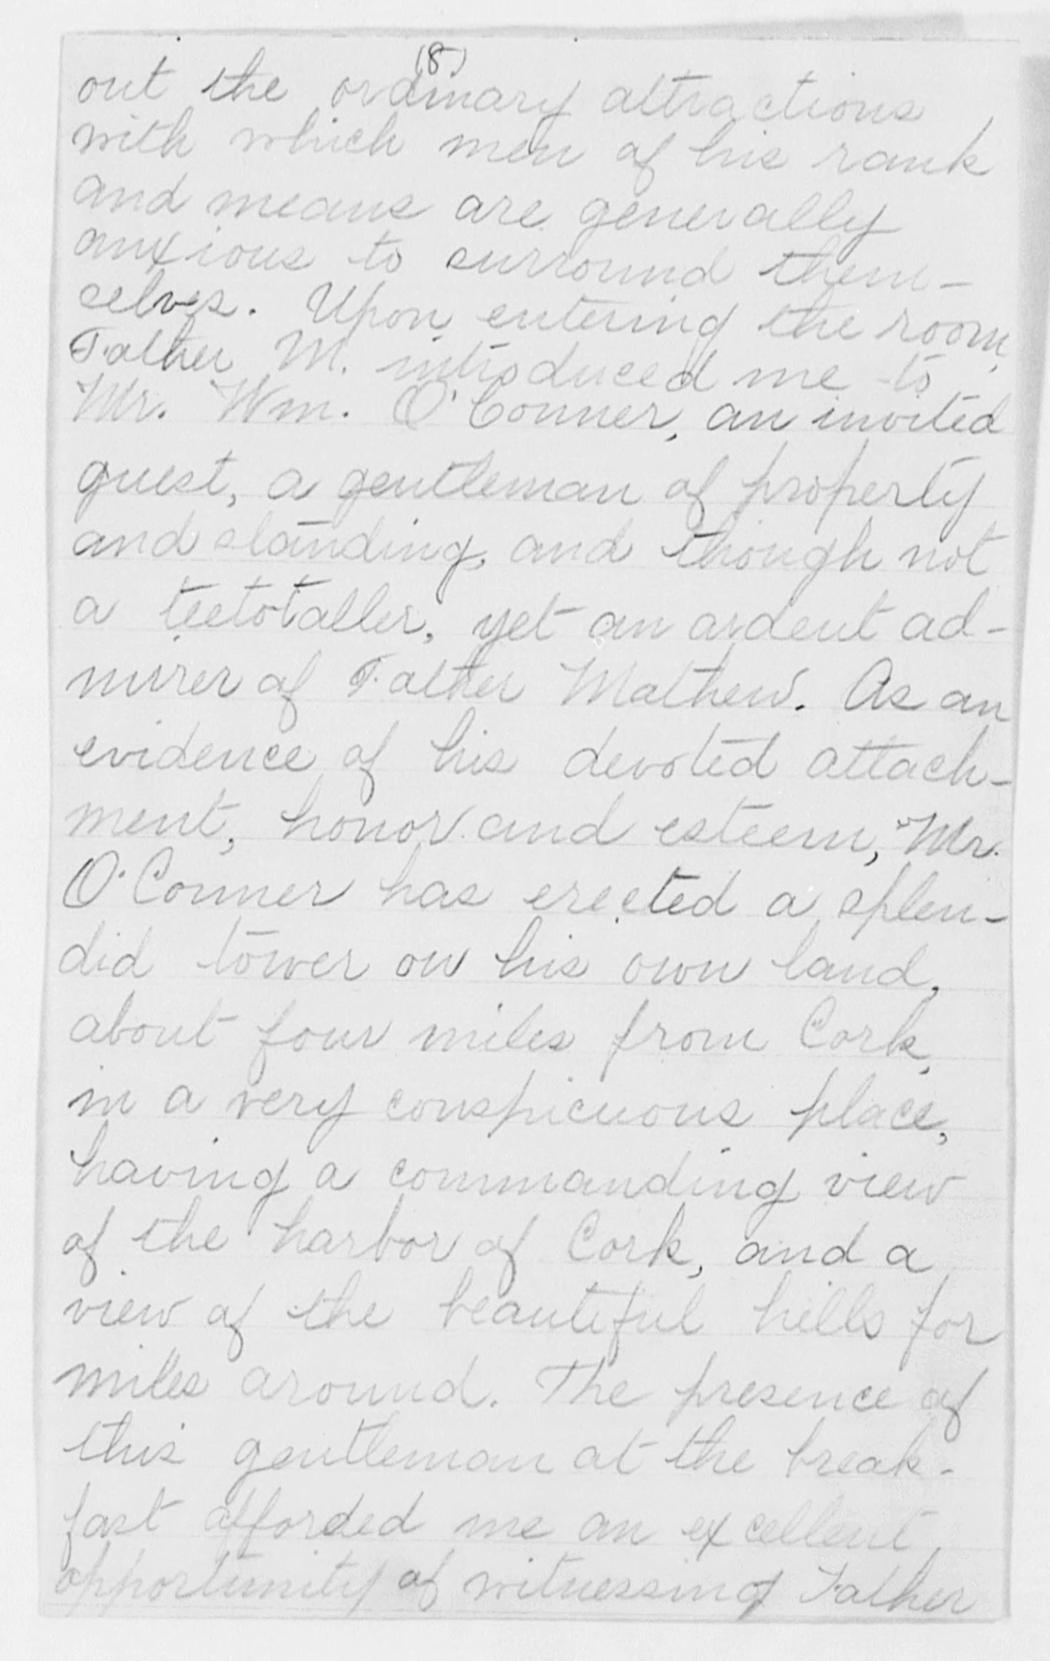 (8)
out the ordinary attractions
with which men of his rank
and means are generally
anxious to surround them-
selves. Upon entering the room,
Father M. introduced me to
Mr. Wm. O'Conner, an invited
guest, a gentleman of property
and standing, and though not
a teetotaller, yet an ardent ad-
mirer of Father Mathew. As an
evidence of his devoted attach-
ment, honor and esteem, Mr.
O'Conner has erected a splen-
did tower on his own land,
about four miles from Cork,
in a very conspicuous place,
having a commanding view
of the harbor of Cork, and a
view of the beautiful hills for
miles around. The presence of
this gentleman at the break-
fast afforded me an excellent
opportunity of witnessing Father